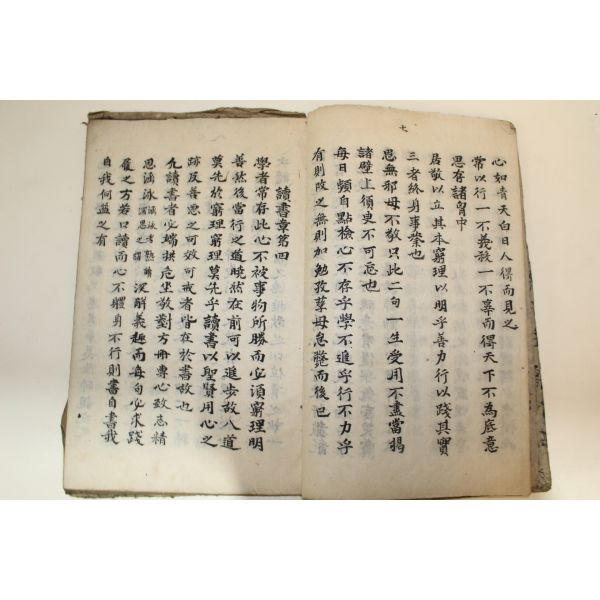 七
心如青天白日人得而見之
常以行一不義殺一不辜而得天下不為底意
思存諸胷中
居敬以立其本窮理以明乎善力行以踐其實
三者終身事業也
思無邪毋不敬只此二句一生受用不盡當揭
諸壁上須臾不可忘也
每日頻自點檢心不存乎學不進乎行不力乎
有則改之無則加勉孜孳毋怠斃而後已
讀書章第四
學者常存此心不被事物所勝而必須窮理明
善然後當行之道曉然在前可以進步故入道
莫先於窮理窮理莫先乎讀書以聖賢用心之
跡及善惡之可效可戒者皆在於書故也
凡讀書者必端拱危坐敬對方冊專心致志精
思涵泳涵泳者熟讀深思之謂深解義趣而每句必求踐
履之方若口讀而心不軆身不行則書自書我
自我何益之有